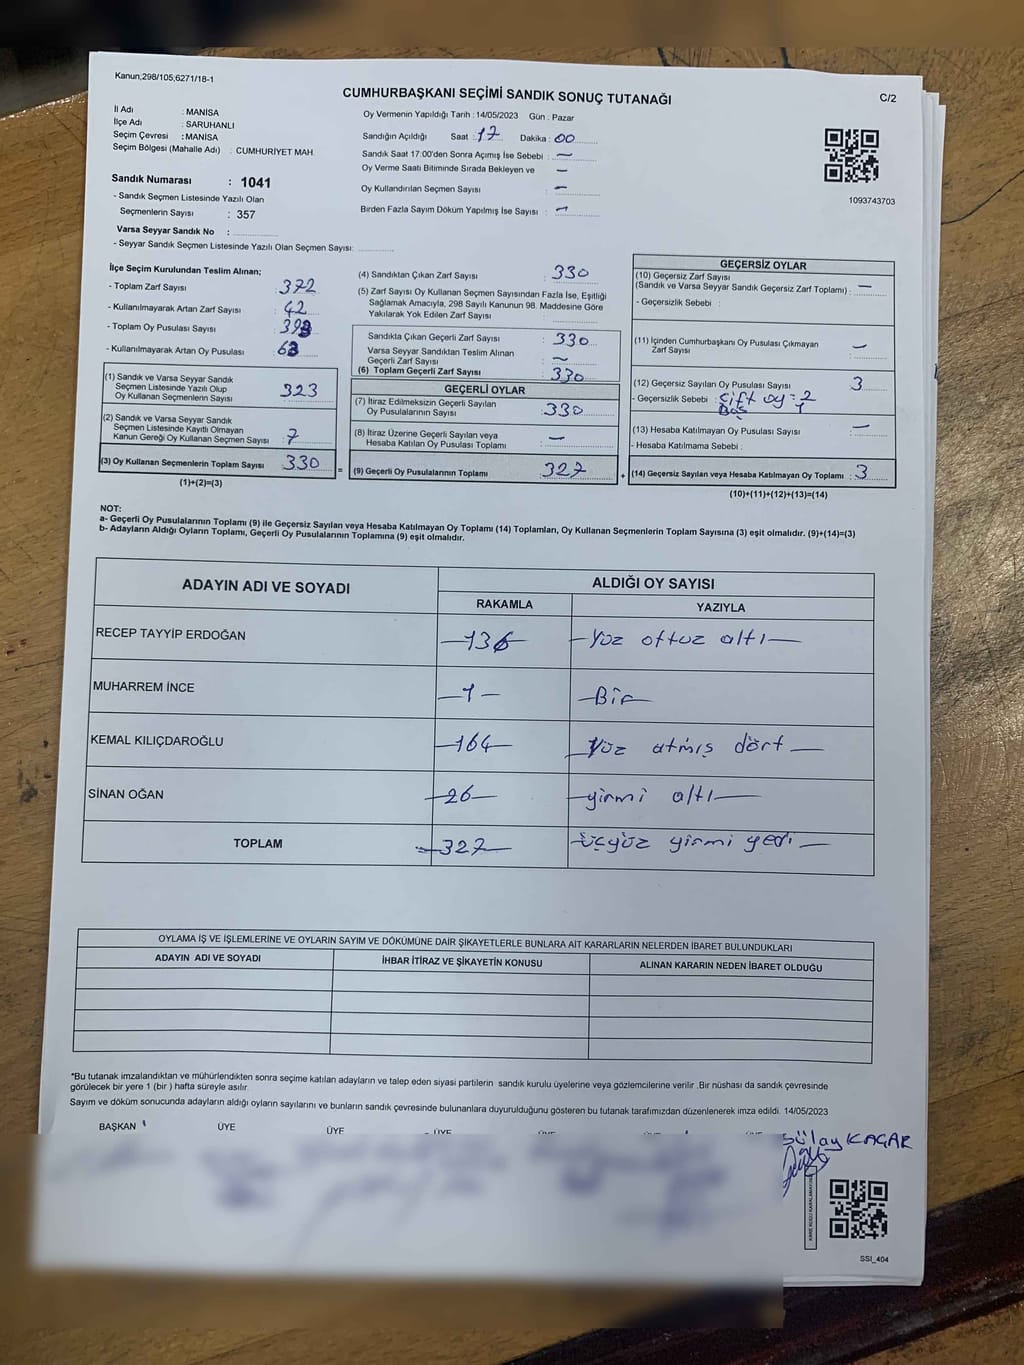 Kanun;298/105,6271/18-1
CUMHURBAŞKANI SEÇİMİ SANDIK SONUÇ TUTANAĞI
C/2
İl Adı : MANİSA
İlçe Adı : SARUHANLI
Seçim Çevresi : MANİSA
Seçim Bölgesi (Mahalle Adı) : CUMHURİYET MAH.
Oy Vermenin Yapıldığı Tarih : 14/05/2023 Gün : Pazar
Sandığın Açıldığı Saat : 17 Dakika : 00
Sandık Saat 17:00'den Sonra Açımış İse Sebebi : —
Oy Verme Saati Bitiminde Sırada Bekleyen ve —
Oy Kullandırılan Seçmen Sayısı : —
Birden Fazla Sayım Döküm Yapılmış İse Sayısı : —
1093743703
Sandık Numarası : 1041
- Sandık Seçmen Listesinde Yazılı Olan
Seçmenlerin Sayısı : 357
Varsa Seyyar Sandık No :
- Seyyar Sandık Seçmen Listesinde Yazılı Olan Seçmen Sayısı:
İlçe Seçim Kurulundan Teslim Alınan;
- Toplam Zarf Sayısı : 372
- Kullanılmayarak Artan Zarf Sayısı : 42
- Toplam Oy Pusulası Sayısı : 393
- Kullanılmayarak Artan Oy Pusulası : 63
(1) Sandık ve Varsa Seyyar Sandık
Seçmen Listesinde Yazılı Olup
Oy Kullanan Seçmenlerin Sayısı : 323
(2) Sandık ve Varsa Seyyar Sandık
Seçmen Listesinde Kayıtlı Olmayan
Kanun Gereği Oy Kullanan Seçmen Sayısı : 7
(3) Oy Kullanan Seçmenlerin Toplam Sayısı : 330
(1)+(2)=(3)
(4) Sandıktan Çıkan Zarf Sayısı : 330
(5) Zarf Sayısı Oy Kullanan Seçmen Sayısından Fazla İse, Eşitliği
Sağlamak Amacıyla, 298 Sayılı Kanunun 98. Maddesine Göre
Yakılarak Yok Edilen Zarf Sayısı :
Sandıkla Çıkan Geçerli Zarf Sayısı : 330
Varsa Seyyar Sandıktan Teslim Alınan
Geçerli Zarf Sayısı : —
(6) Toplam Geçerli Zarf Sayısı : 330
GEÇERLİ OYLAR
(7) İtiraz Edilmeksizin Geçerli Sayılan
Oy Pusulalarının Sayısı : 330
(8) İtiraz Üzerine Geçerli Sayılan veya
Hesaba Katılan Oy Pusulası Toplamı : —
= (9) Geçerli Oy Pusulalarının Toplamı : 327
GEÇERSİZ OYLAR
(10) Geçersiz Zarf Sayısı
(Sandık ve Varsa Seyyar Sandık Geçersiz Zarf Toplamı) : —
- Geçersizlik Sebebi :
(11) İçinden Cumhurbaşkanı Oy Pusulası Çıkmayan
Zarf Sayısı : —
(12) Geçersiz Sayılan Oy Pusulası Sayısı : 3
- Geçersizlik Sebebi : Çift oy = 2
Boş 1
(13) Hesaba Katılmayan Oy Pusulası Sayısı : —
- Hesaba Katılmama Sebebi :
+ (14) Geçersiz Sayılan veya Hesaba Katılmayan Oy Toplamı : 3
(10)+(11)+(12)+(13)=(14)
NOT:
a- Geçerli Oy Pusulalarının Toplamı (9) ile Geçersiz Sayılan veya Hesaba Katılmayan Oy Toplamı (14) Toplamları, Oy Kullanan Seçmenlerin Toplam Sayısına (3) eşit olmalıdır. (9)+(14)=(3)
b- Adayların Aldığı Oyların Toplamı, Geçerli Oy Pusulalarının Toplamına (9) eşit olmalıdır.
ADAYIN ADI VE SOYADI
ALDIĞI OY SAYISI
RAKAMLA YAZIYLA
RECEP TAYYİP ERDOĞAN —136— —Yüz oftuz altı—
MUHARREM İNCE —1— —Bir—
KEMAL KILIÇDAROĞLU —164— —Yüz atmış dört—
SİNAN OĞAN —26— —yirmi altı—
TOPLAM —327— —üçyüz yirmi yedi—
OYLAMA İŞ VE İŞLEMLERİNE VE OYLARIN SAYIM VE DÖKÜMÜNE DAİR ŞİKAYETLERLE BUNLARA AİT KARARLARIN NELERDEN İBARET BULUNDUKLARI
ADAYIN ADI VE SOYADI İHBAR İTİRAZ VE ŞİKAYETİN KONUSU ALINAN KARARIN NEDEN İBARET OLDUĞU
*Bu tutanak imzalandıktan ve mühürlendikten sonra seçime katılan adayların ve talep eden siyasi partilerin sandık kurulu üyelerine veya gözlemcilerine verilir .Bir nüshası da sandık çevresinde
görülecek bir yere 1 (bir ) hafta süreyle asılır.
Sayım ve döküm sonucunda adayların aldığı oyların sayılarını ve bunların sandık çevresinde bulunanlara duyurulduğunu gösteren bu tutanak tarafımızdan düzenlenerek imza edildi. 14/05/2023
BAŞKAN ÜYE ÜYE ÜYE
Sülay KAÇAR
SSI_404